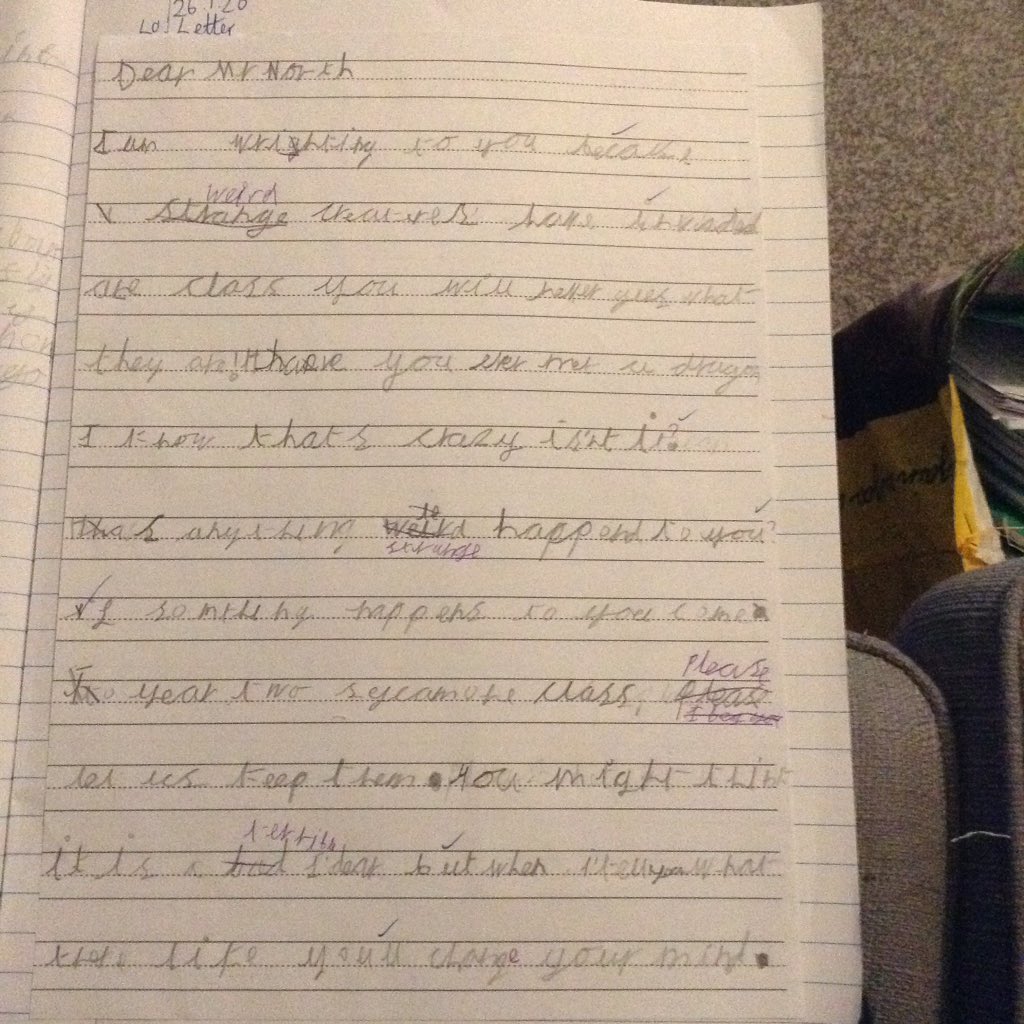 26 1 20
LO Letter
Dear Mr North
I am wrighting to you because
weird
strange creatures have invaded
are class you will never gues what
they are! have you ever met a dragon
I know that's crazy isn't it?
Has anything weird happend to you?
strange
If something happens to you come
to year two sycamore class, please
Please
I beg you
let us keep them. You might think
terrible
it is a bad idear but when i tell you what
there like you'll change your mind.